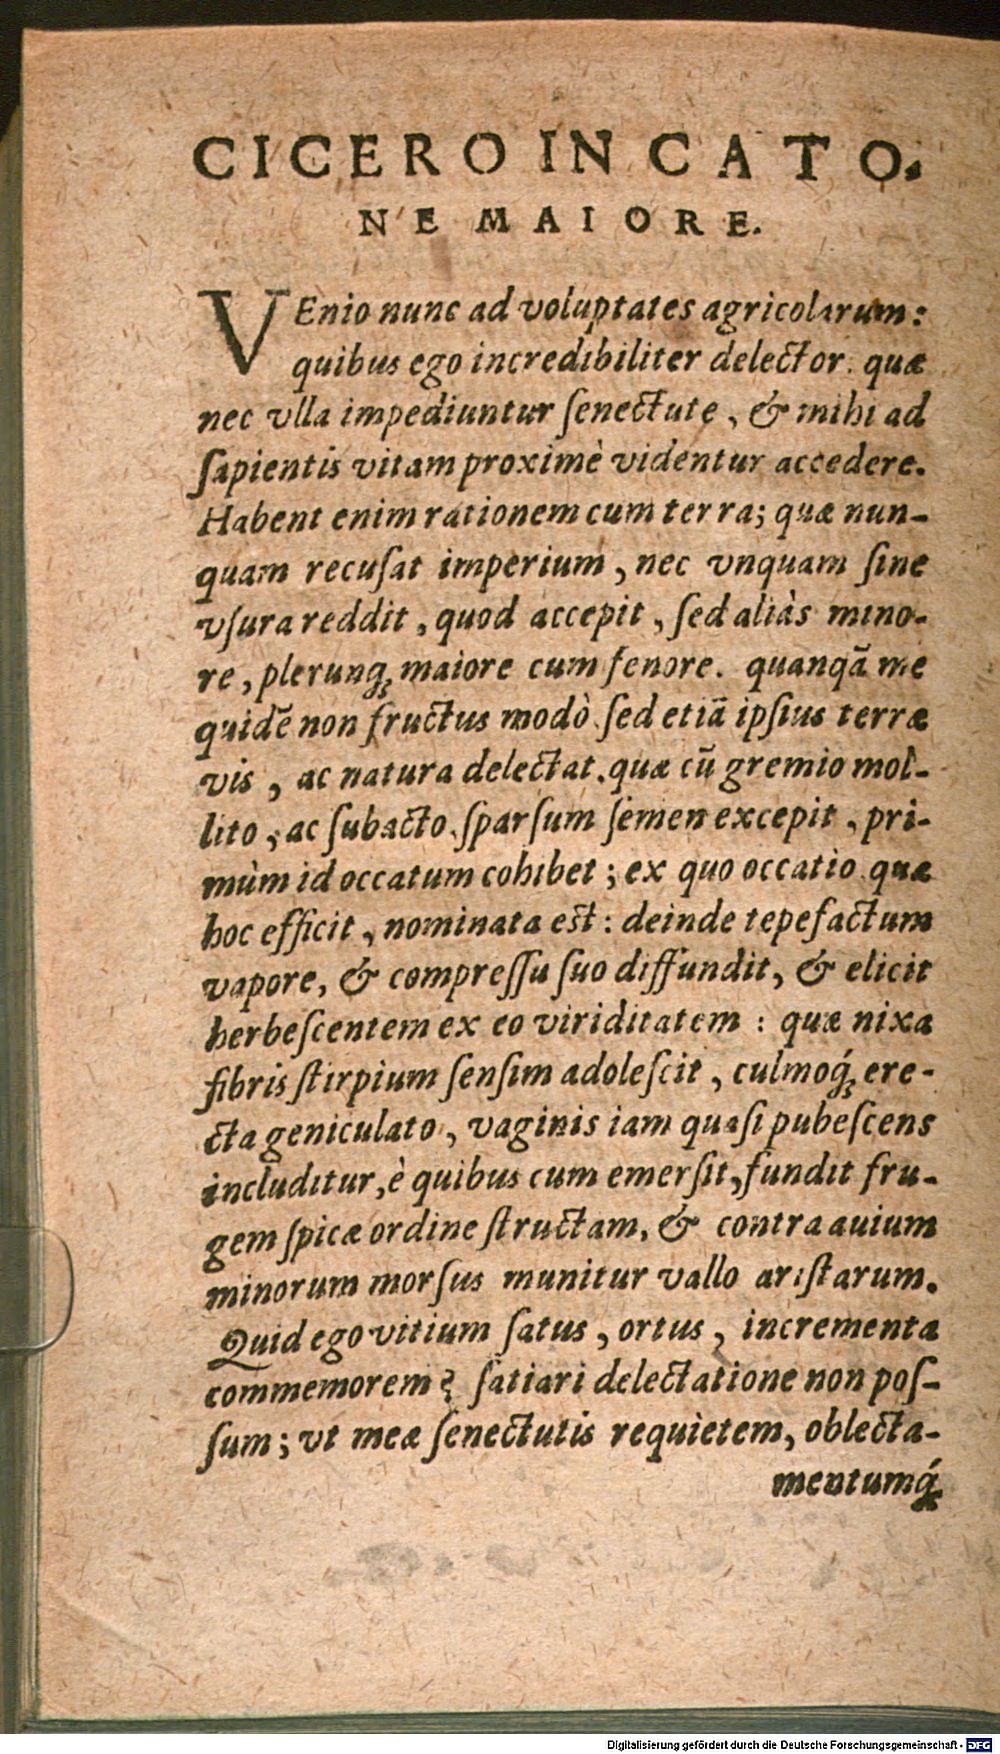 CICERO IN CATO.
NE MAIORE.
VEnio nunc ad voluptates agricolarum:
quibus ego incredibiliter delector. quæ
nec vlla impediuntur ſenectute, & mihi ad
ſapientis vitam proximè videntur accedere.
Habent enim rationem cum terra; quæ nun-
quam recuſat imperium, nec vnquam ſine
vſura reddit, quod accepit, ſed aliàs mino-
re, plerunq; maiore cum fenore. quanqã me
quidẽ non fructus modò ſed etiã ipſius terræ
vis, ac natura delectat. quæ cũ gremio mol-
lito, ac ſubacto, ſparſum ſemen excepit, pri-
mùm id occatum cohibet; ex quo occatio quæ
hoc efficit, nominata eſt: deinde tepefactum
vapore, & compreſſu ſuo diffundit, & elicit
herbeſcentem ex eo viriditatem: quæ nixa
fibris ſtirpium ſenſim adoleſcit, culmoq́; ere-
cta geniculato, vaginis iam quaſi pubeſcens
includitur, è quibus cum emerſit, fundit fru-
gem ſpicæ ordine ſtructam, & contra auium
minorum morſus munitur vallo ariſtarum.
Quid ego vitium ſatus, ortus, incrementa
commemorem? ſatiari delectatione non poſ-
ſum; vt meæ ſenectutis requietem, oblecta-
mentumq́;
Digitalisierung gefördert durch die Deutsche Forschungsgemeinschaft - DFG